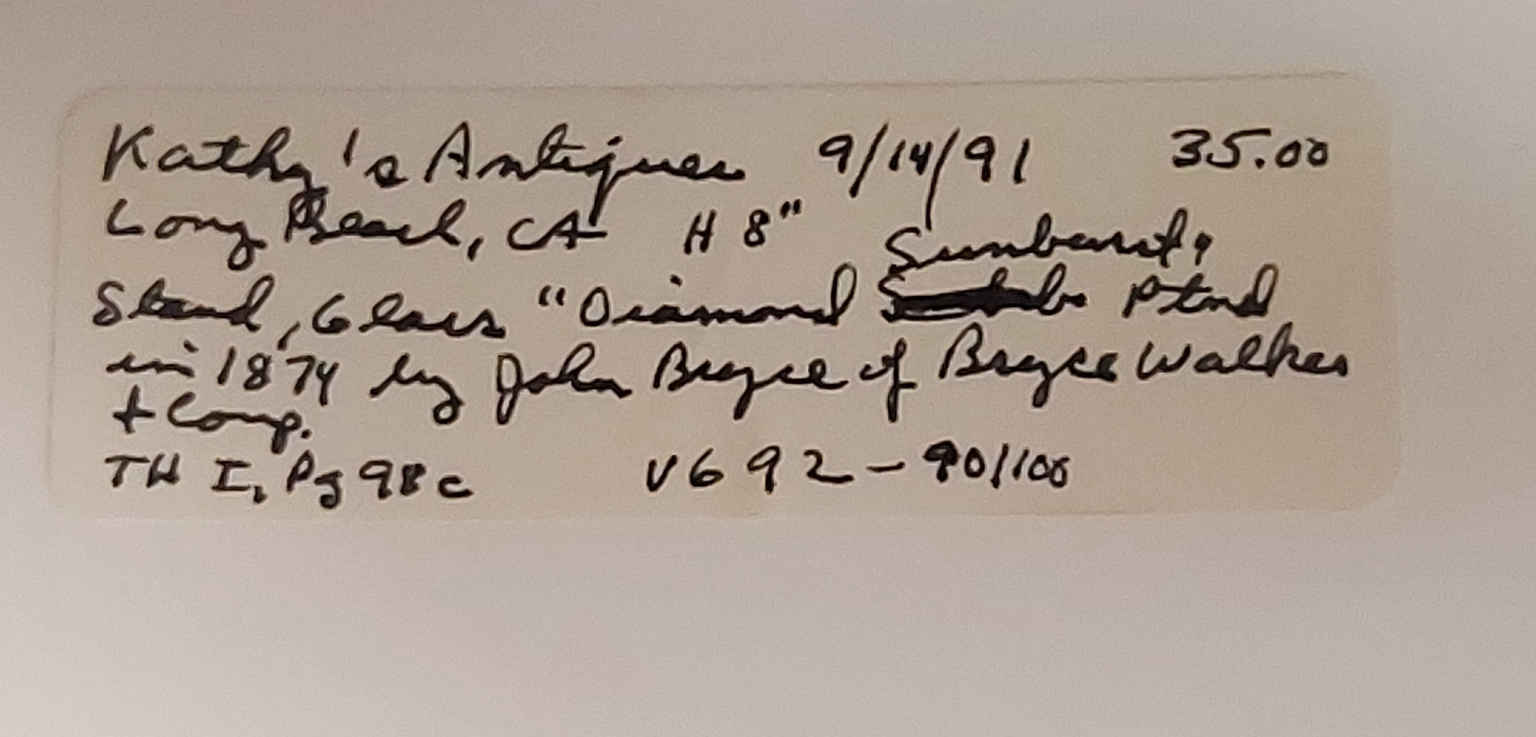 Kathy's Antiques 9/14/91 35.00
Long Beach, CA H 8" Sunburst,
Stand, Glass "Diamond Ptnd
in 1874 by John Bryce of Bryce Walker
+ Comp.
TH I, Pg 98c V692-90/100